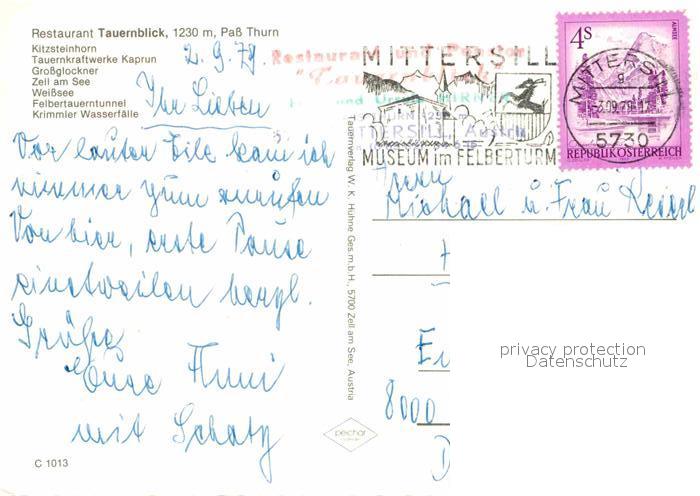 Restaurant Tauernblick, 1230 m, Paß Thurn
Kitzsteinhorn
Tauernkraftwerke Kaprun
Großglockner
Zell am See
Weißsee
Felbertauerntunnel
Krimmler Wasserfälle
2.9.79.
Ihr Lieben
Vor lauter Eile kam ich
nimmer zum anrufen
Von hier, erste Pause
einstweilen herzl.
Grüße
Eure Anni
mit Schatz
C 1013
Tauernverlag W. K. Huhne Ges.m.b.H., 5700 Zell am See, Austria
Restaurant und Pension
MITTERSILL
MUSEUM im FELBERTURM
MITTERSILL
-3.09.79-17
5730
4S
REPUBLIK ÖSTERREICH
Herrn
Michael u. Frau
8000
privacy protection
Datenschutz